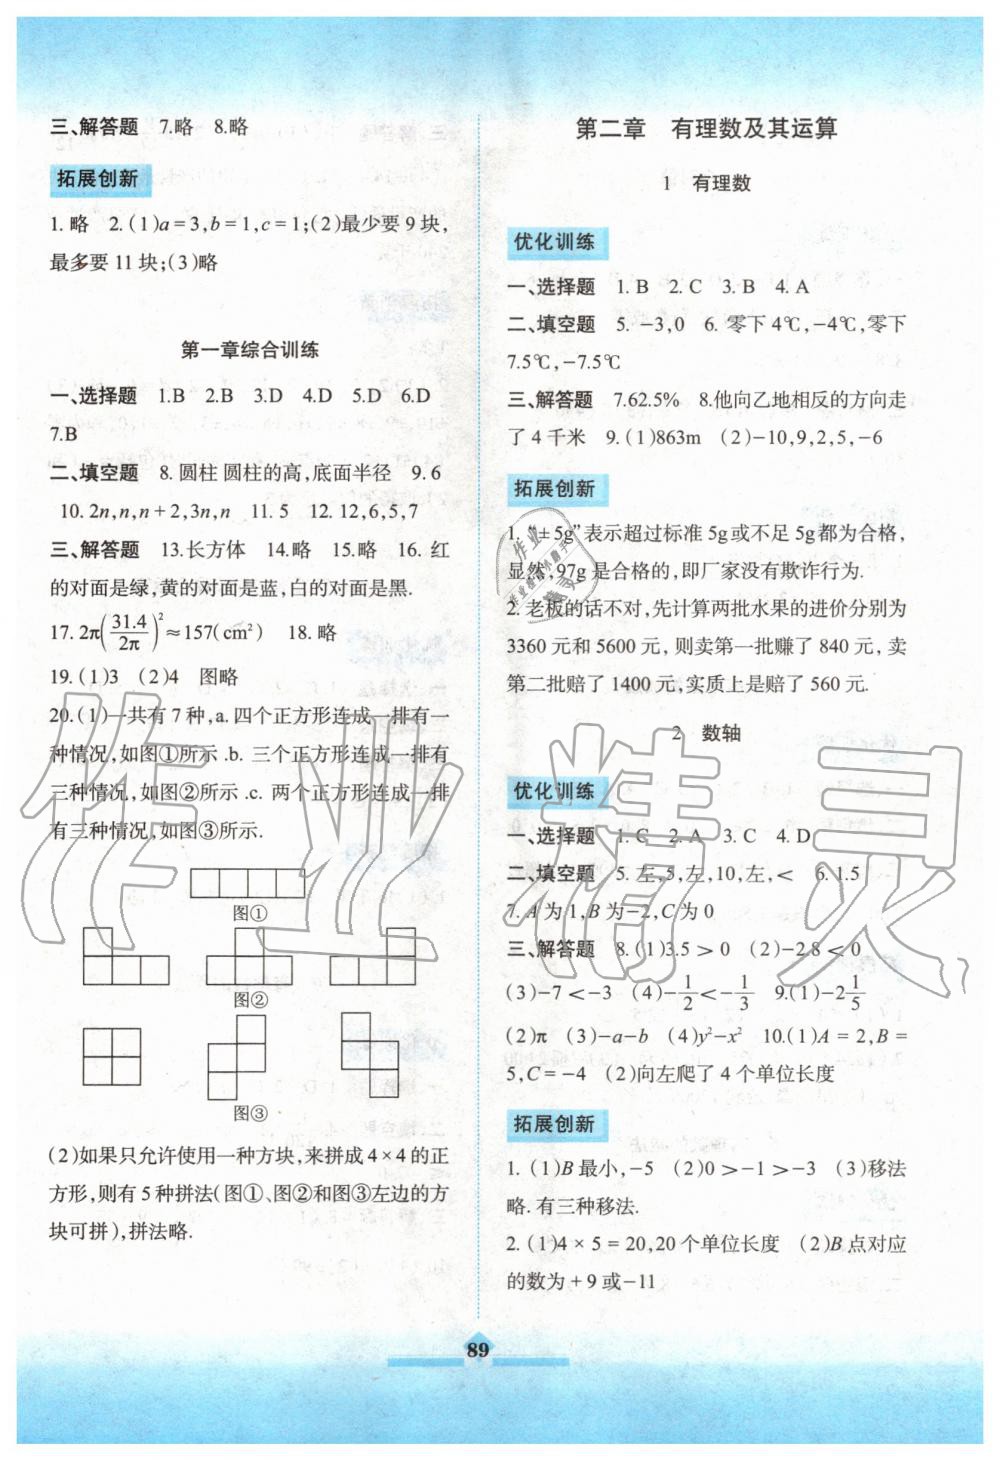 三、解答题　7.略　8.略
拓展创新
1. 略　2. (1)a=3,b=1,c=1;(2)最少要 9 块,
最多要 11 块;(3)略
第一章综合训练
一、选择题　1.B　2.B　3.D　4.D　5.D　6.D
7.B
二、填空题　8. 圆柱 圆柱的高,底面半径　9. 6
10. 2n,n,n+2,3n,n　11. 5　12. 12,6,5,7
三、解答题　13.长方体　14.略　15.略　16. 红
的对面是绿,黄的对面是蓝,白的对面是黑.
17. 2π(31.4/2π)²≈157(cm²)　18. 略
19. (1)3　(2)4　图略
20. (1)一共有 7 种,a. 四个正方形连成一排有一
种情况,如图①所示.b. 三个正方形连成一排有
三种情况,如图②所示.c. 两个正方形连成一排
有三种情况,如图③所示.
图①
图②
图③
(2)如果只允许使用一种方块,来拼成 4×4 的正
方形,则有 5 种拼法(图①、图②和图③左边的方
块可拼),拼法略.
第二章　有理数及其运算
1　有理数
优化训练
一、选择题　1. B　2. C　3. B　4. A
二、填空题　5. −3,0　6. 零下 4℃,−4℃,零下
7.5℃,−7.5℃
三、解答题　7.62.5%　8.他向乙地相反的方向走
了 4 千米　9. (1)863m　(2)−10,9,2,5,−6
拓展创新
1. “±5g”表示超过标准 5g 或不足 5g 都为合格,
显然,97g 是合格的,即厂家没有欺诈行为.
2. 老板的话不对,先计算两批水果的进价分别为
3360 元和 5600 元,则卖第一批赚了 840 元,卖
第二批赔了 1400 元,实质上是赔了 560 元.
2　数轴
优化训练
一、选择题　1. C　2. A　3. C　4. D
二、填空题　5. 左,5,左,10,左,<　6. 1.5
7. A 为 1,B 为−2,C 为 0
三、解答题　8. (1)3.5>0　(2)−2.8<0
(3)−7<−3　(4)−1/2<−1/3　9.(1)−2 1/5
(2)π　(3)−a−b　(4)y²−x²　10.(1)A=2,B=
5,C=−4　(2)向左爬了 4 个单位长度
拓展创新
1. (1)B 最小,−5　(2)0>−1>−3　(3)移法
略. 有三种移法.
2. (1)4×5=20,20 个单位长度　(2)B 点对应
的数为+9 或−11
89
作业精灵